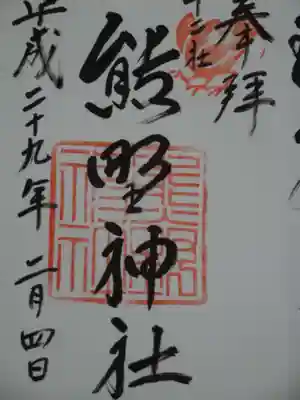 奉拝
十二社
熊野神社
平成二十九年 二月四日